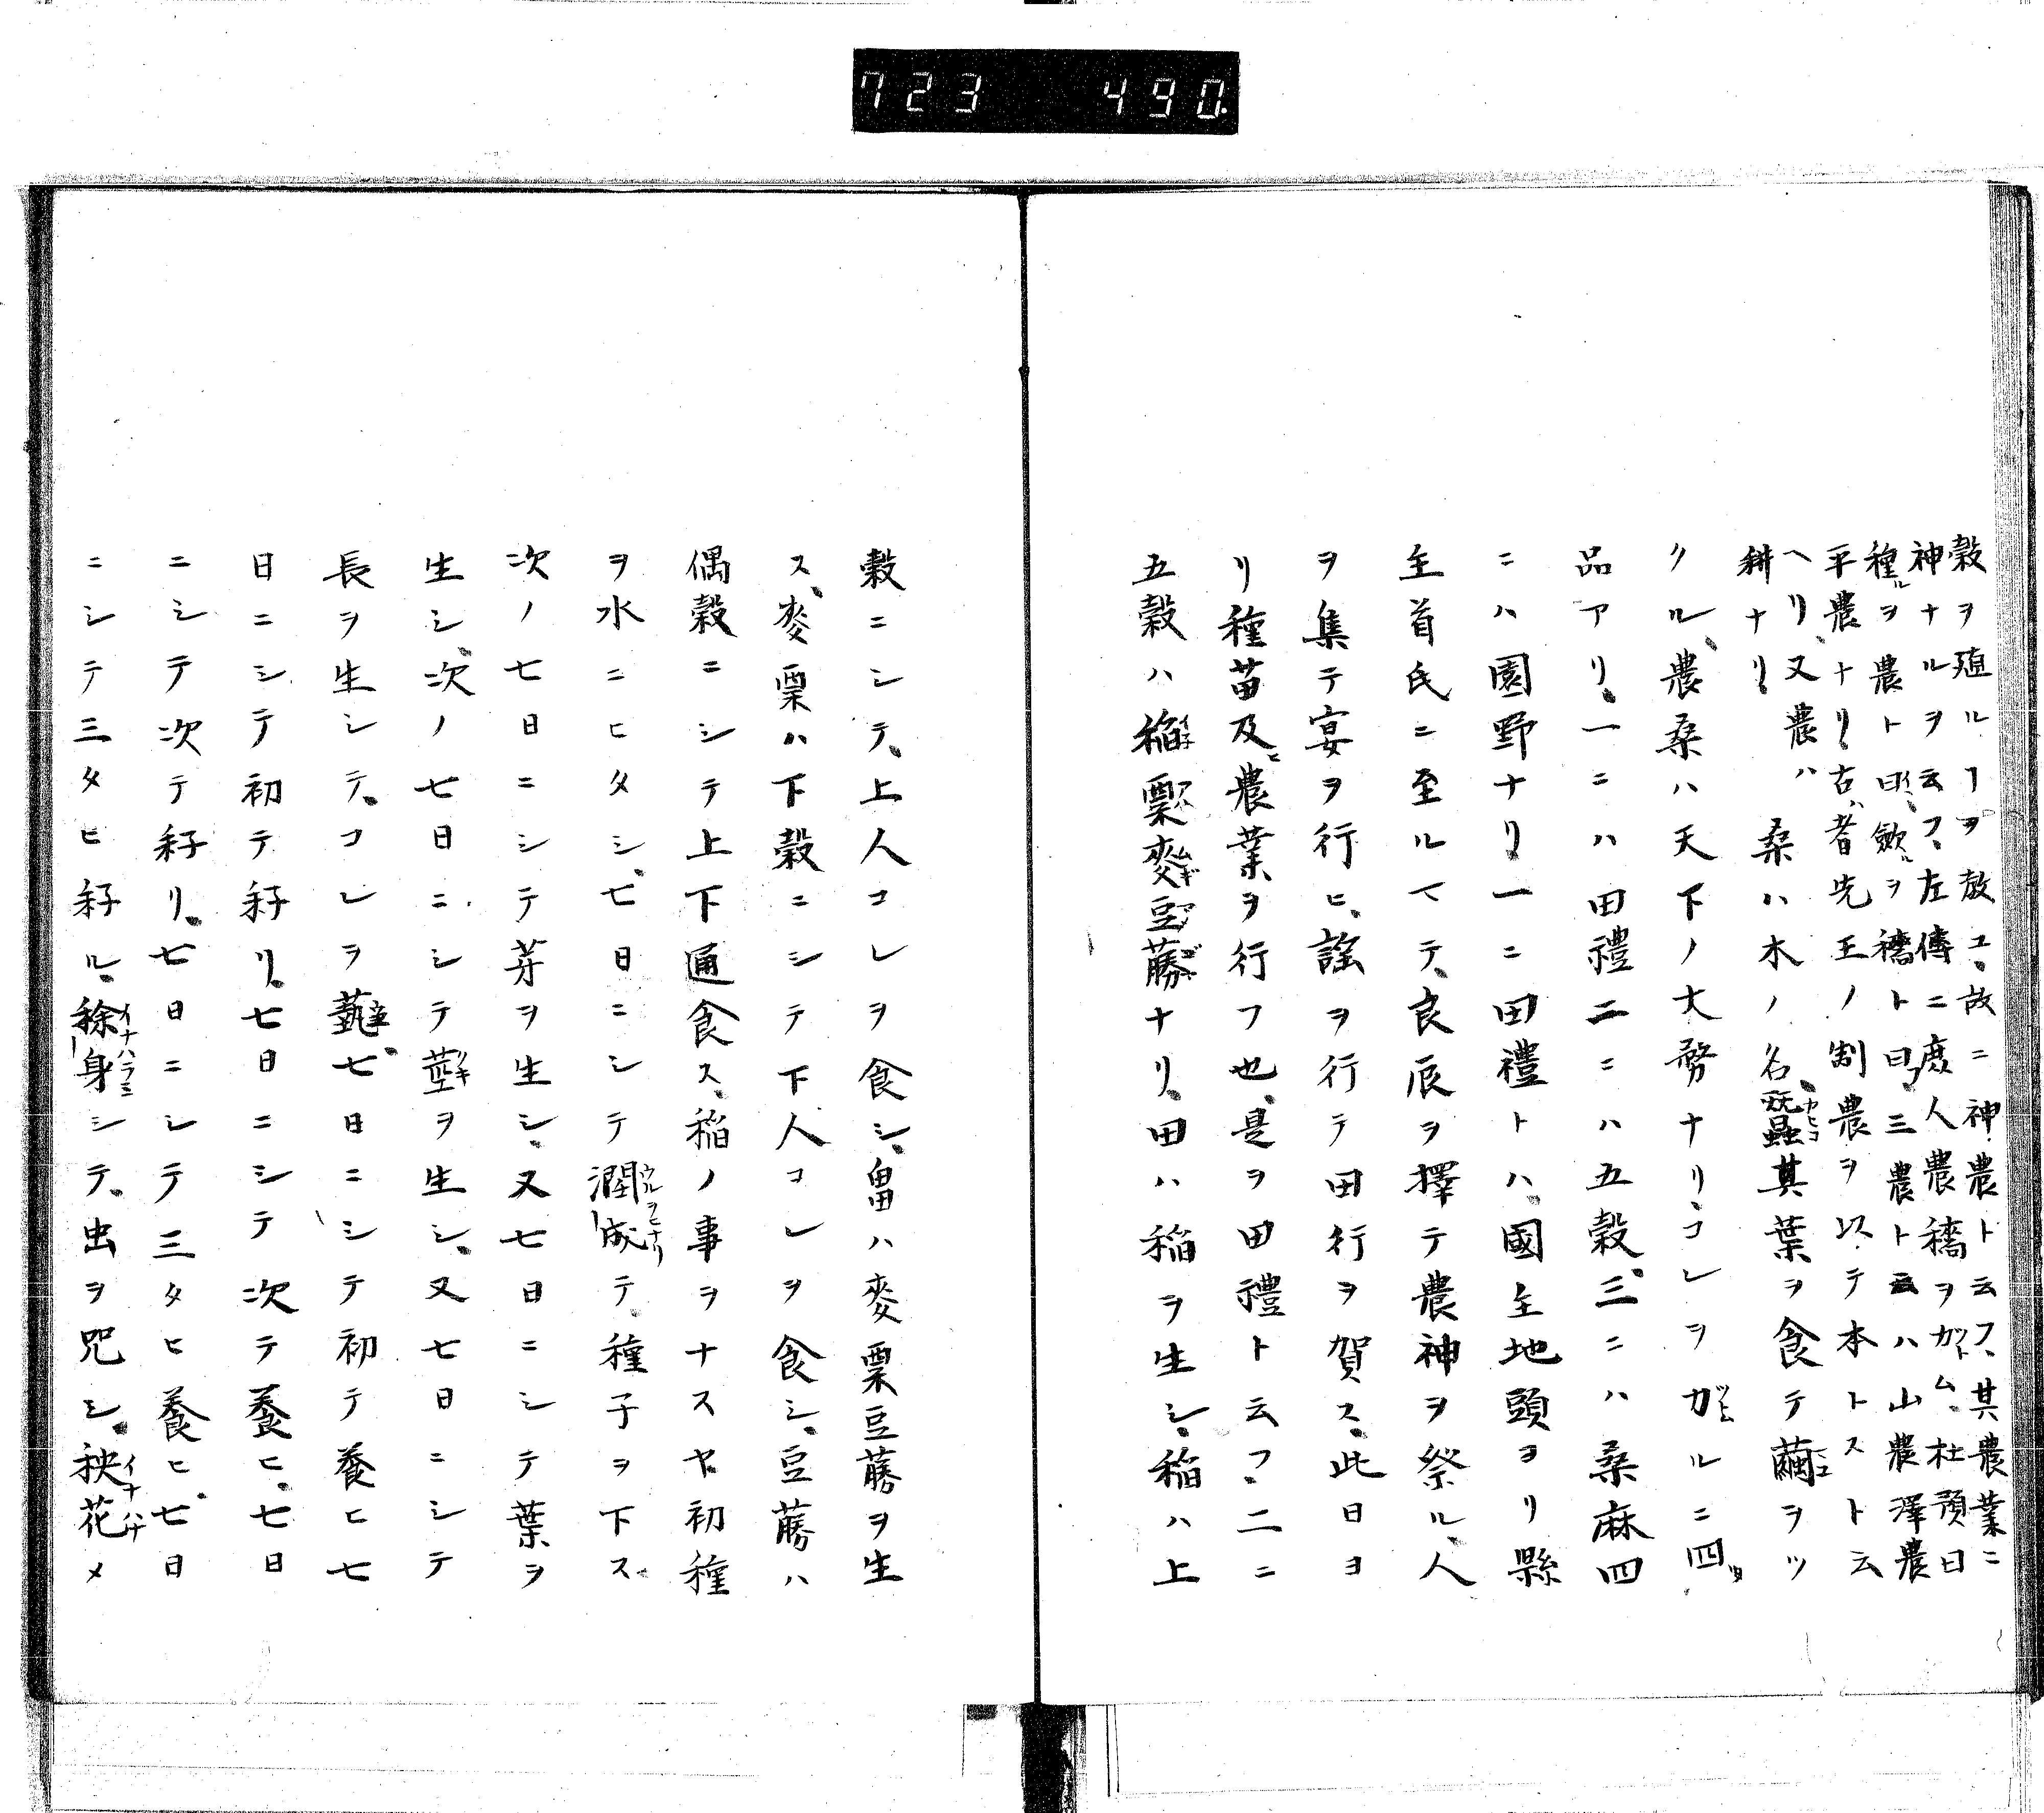 723 490.
穀ヲ殖ルヿヲ教ユ、故ニ神農ト云フ、其農業ニ
神ナルヲ云フ、左傳ニ庶人農穡ヲ力ム、杜預曰
種ルヲ農ト曰、斂ルヲ穡ト曰フ、三農ト云ハ山農澤農
平農ナリ、古ハ者先王ノ制農ヲ以テ本トスト云
ヘリ、又農ハ
耕ナリ、桑ハ木ノ名、蠶其葉ヲ食テ繭ヲツ
クル、農桑ハ天下ノ大務ナリ、コレヲ力ルニ四ツ
品アリ、一ニハ田禮二ニハ五穀、三ニハ桑麻四
ニハ園野ナリ一ニ田禮トハ、國主地頭ヨリ縣
主首氏ニ至ルマテ、良辰ヲ擇テ農神ヲ祭ル、人
ヲ集テ宴ヲ行ヒ、謡ヲ行テ田行ヲ賀ス、此日ヨ
リ種苗及ニ農業ヲ行フ也、是ヲ田禮ト云フ、二ニ
五穀ハ稲粟麥豆䕨ナリ、田ハ稲ヲ生シ、稲ハ上
穀ニシテ、上人コレヲ食シ、畠ハ麥粟豆䕨ヲ生
ス、麥粟ハ下穀ニシテ下人コレヲ食シ、豆䕨ハ
偶穀ニシテ上下通食ス、稲ノ事ヲナスヤ初種
ヲ水ニヒタシ、七日ニシテ潤成テ、種子ヲ下ス、
次ノ七日ニシテ芽ヲ生シ、又七日ニシテ葉ヲ
生シ、次ノ七日ニシテ莖ヲ生シ、又七日ニシテ
長ヲ生シテ、コレヲ蓺、七日ニシテ初テ養ヒ七
日ニシテ初テ秄リ、七日ニシテ次テ養ヒ、七日
ニシテ次テ秄リ、七日ニシテ三タヒ養ヒ、七日
ニシテ三タヒ秄ル、稌身シテ、虫ヲ咒シ、秧花メ